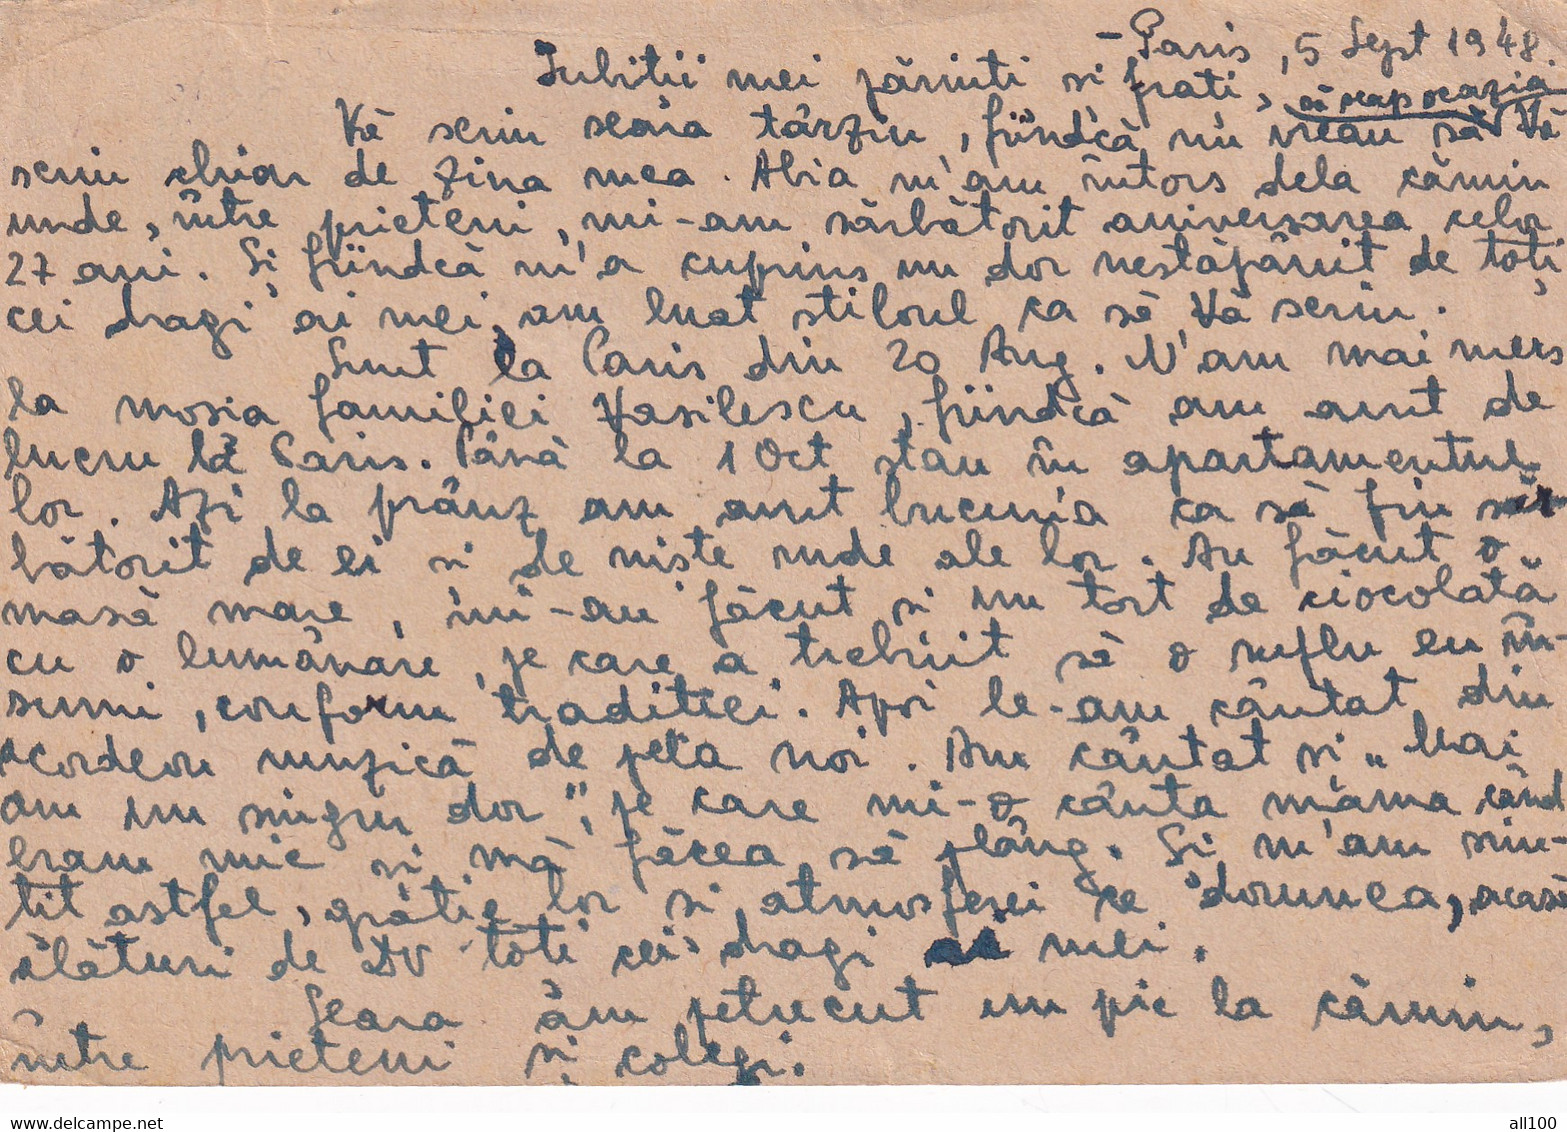 - Paris, 5 Sept 1948.
Iubitii mei părinti si frati,
Vă scriu seara târziu, fiindcă nu vreau să scap ocazia să Vă
scriu chiar de ziua mea. Abia m'am întors dela cămin
unde, între prieteni, mi-am sărbătorit aniversarea celor
27 ani. Si fiindcă m'a cuprins un dor nestăpânit de toți
cei dragi ai mei, am luat stiloul ca să Vă scriu.
Sunt la Paris din 20 Aug. N'am mai mers
la mosia familiei Vasilescu, fiindcă am avut de
lucru la Paris. Până la 1 Oct stau în apartamentul
lor. Azi la prânz am avut bucuria ca să fiu săr-
bătorit de ei si de niște rude ale lor. Au făcut o
masă mare, mi-au făcut si un tort de ciocolată
cu o lumânare, pe care a trebuit să o suflu eu în
sumi, conform traditiei. Apoi le-am cântat din
acordeon muzică de pela noi. Am cântat si „Mai
am un singur dor", pe care mi-o cânta mama când
eram mic si mă făcea să plâng. Si m'am sim-
tit astfel, grație lor si atmosferei ce domnea, acasă
alături de DV toti cei dragi ai mei.
Seara am petrecut un pic la cămin,
între prieteni și colegi.
all100
www.delcampe.net